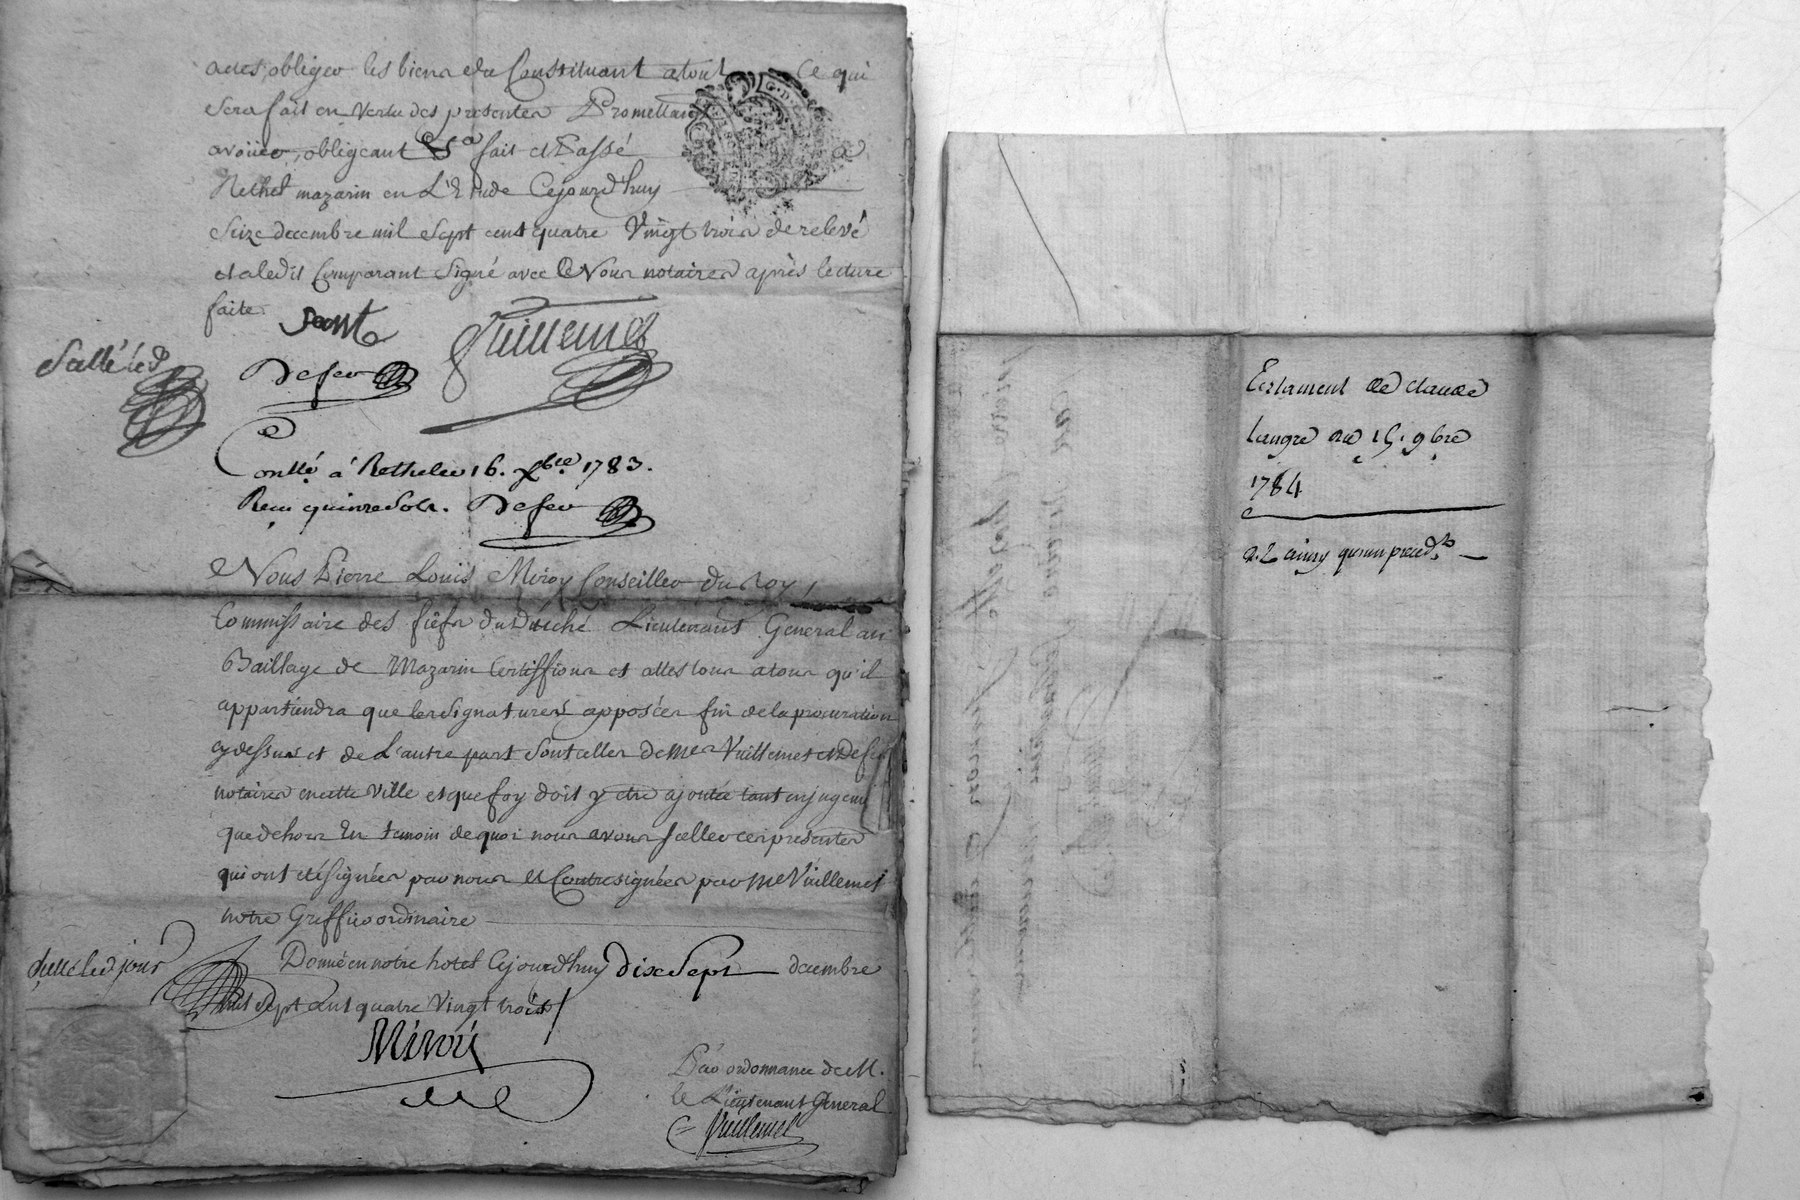 actes, obliger les biens du Constituant atout ce qui
sera fait en vertu des presentes Promettant
avoüer, obligeant &a fait et Passé a
Rethel mazarin en L'Etude Cejourd'huy
Seize decembre mil sept cent quatre Vingt trois de relevé
et a ledit Comparant Signé avec Nous notaires après lecture
faite
Scellé led
Vuillemet
Defer
Contlé à Rethel le 16. Xbre 1783.
Recu quinze Sols. Defer
Nous Pierre Louis Miroy Conseiller du Roy,
Commissaire des fiefs du Duché Lieutenant General au
Baillage de Mazarin Certiffions et attestons atous qu'il
appartiendra que les signatures apposées fin de la procuration
cydessus et de L'autre part Sont celles de Mes Vuillemet et Defer
notaires en cette Ville et que foy doit y etre ajoutée tant en jugemt
que dehors En temoin de quoi nous avons sceller ces presentes
qui ont été signées par nous et Contresignées par Me Vuillemet
notre Greffier ordinaire
Donné en notre hotel Cejourd'huy dix Sept decembre
mil Sept Cent quatre Vingt trois
scellé led jour
Miroy
Par ordonnance de M.
le Lieutenant General
Vuillemet
Testament de claude
langre du 15. 9bre
1784